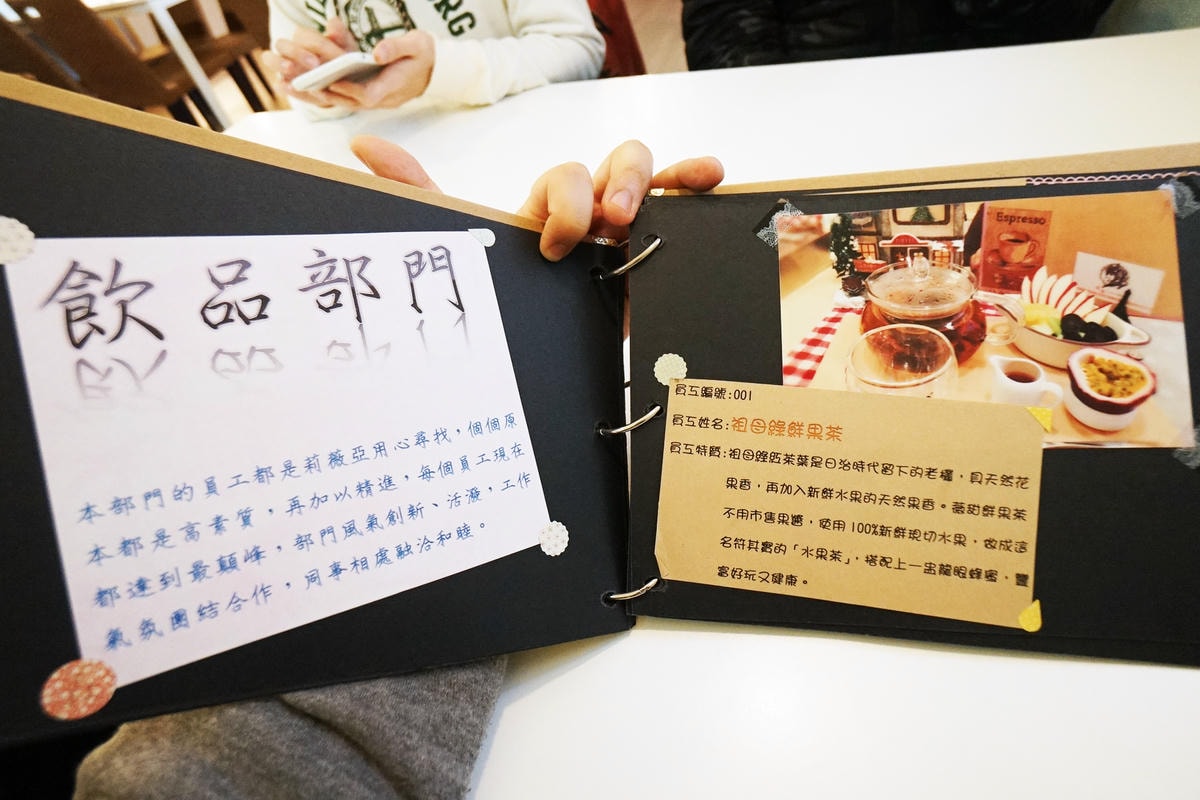 飲品部門
本部門的員工都是莉薇亞用心尋找，個個原
本都是高素質，再加以精進，每個員工現在
都達到最顛峰，部門風氣創新、活潑，工作
氣氛團結合作，同事相處融洽和睦。
Espresso
員工編號:001
員工姓名:祖母綠鮮果茶
員工特質:祖母綠紅茶葉是日治時代留下的老欉，具天然花
果香，再加入新鮮水果的天然果香。薇甜鮮果茶
不用市售果醬，使用100%新鮮現切水果，做成這
名符其實的「水果茶」，搭配上一盅龍眼蜂蜜，豐
富好玩又健康。